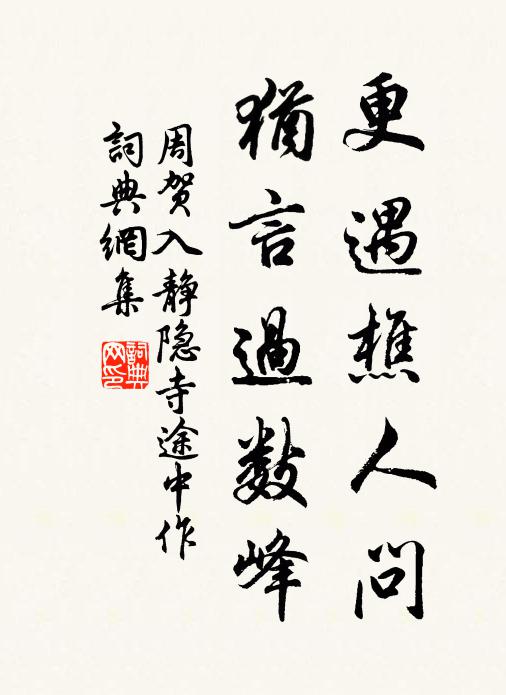 更遇樵人问
犹言過数峰
周贺入静隐寺途中作
詞典網集
詞典網印